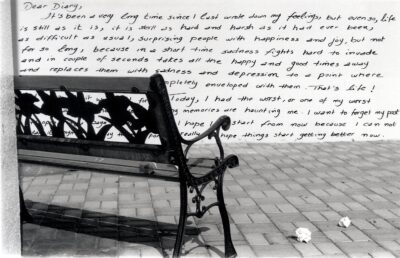 Dear Diary,
It's been a very long time since I last wrote down my feelings, but even so, life
is still as it is, it is still as hard and harsh as it had ever been,
as difficult as usual, surprising people with happiness and joy, but not
for so long, because in a short time sadness fights hard to invade
and in couple of seconds takes all the happy and good times away
and replaces them with sadness and depression to a point where
completely enveloped with them. That's life!
Today, I had the worst, or one of my worst
memories are haunting me. I want to forget my past
I hope I start from now because I can not
really hope things start getting better now.